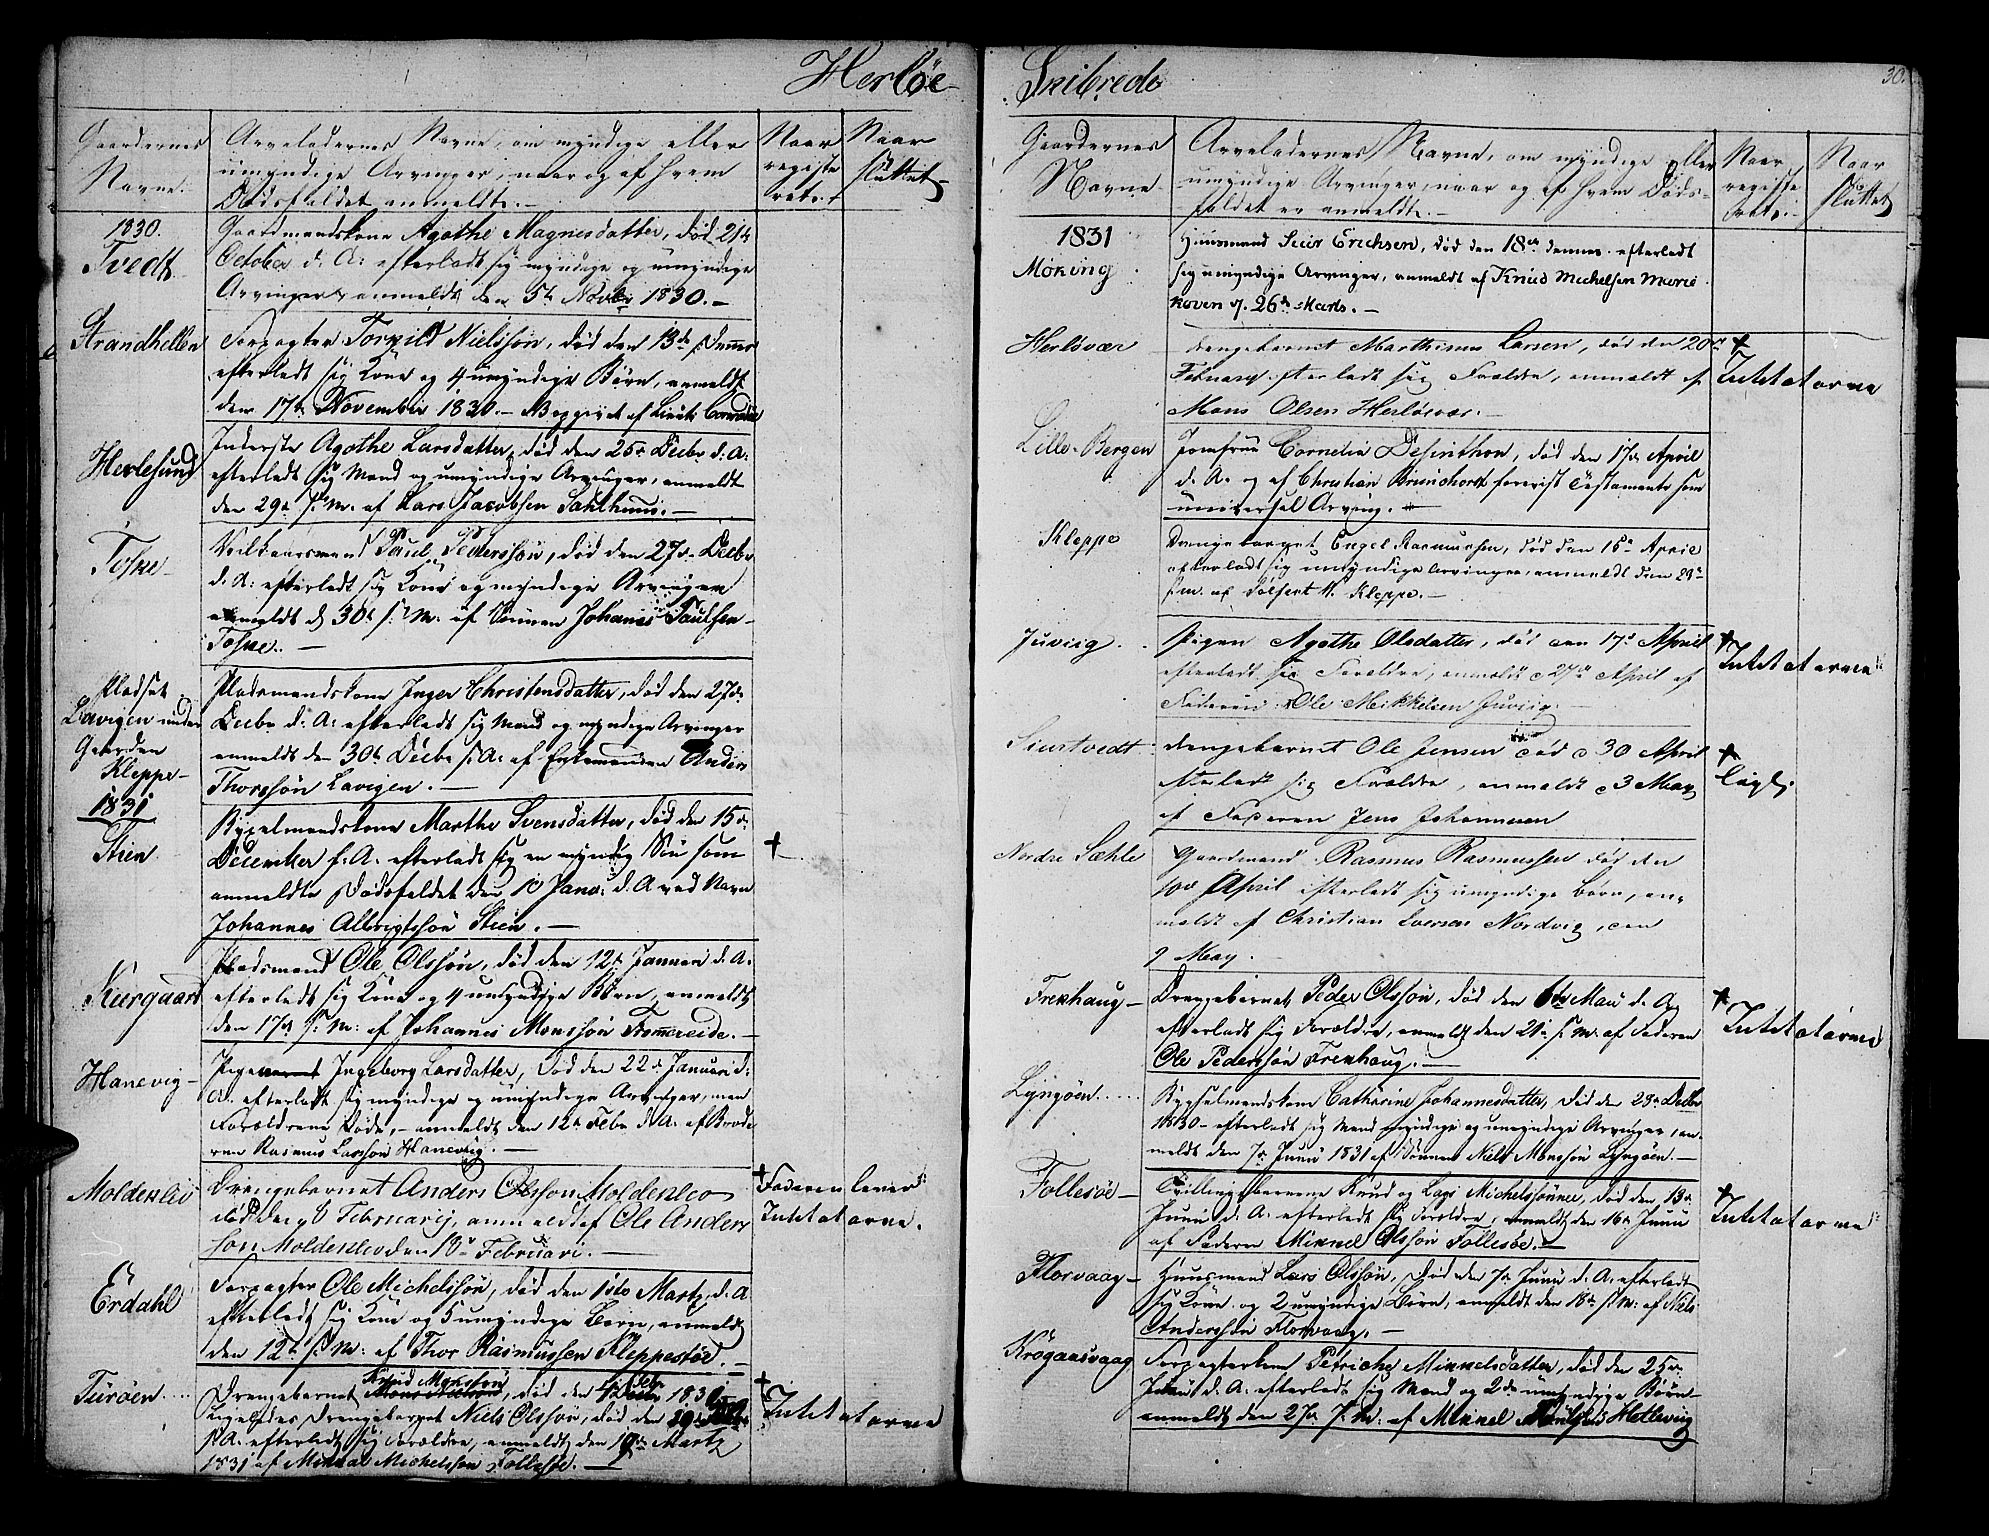 Herløe
Gaardernes
Navne.
Arveladernes Navne, om myndige eller
umyndige Arvinger, naar og af hvem
Dødsfaldet anmeldt. –
Naar
registe
rets.
Naar
sluttet
1830.
Tvedt
Gaardmandskone Agathe Magnesdatter, død 21de
October d. A: efterladt sig myndige og umyndige
Arvinger, anmeldt den 5te Novbr 1830. –
Strandhellen
Forpagter Torkild Nielssøn, død den 13de dennes
efterladt sig Kone og 4 umyndige Børn, anmeldt
den 17de November 1830. – Begyndt af Lieut:
Herlesund
Inderste Agathe Larsdatter, død den 25de Decbr d. A.
efterladt sig Mand og umyndige Arvinger, anmeldt
den 29de s. M. af Lars Jacobsen Sahlhuus. –
Toske
Vilkaarsmand Paul Pederssøn, død den 27de Decbr
d. A: efterladt sig Kone og myndige Arvinger
anmeldt d 30te s. M. af Sønnen Johanes Paulsen
Toske. –
Pladset
Lavigen under
Gaarden
Kleppe –
Pladsmandskone Inger Christensdatter, død den 27de
Decbr d. A: efterladt sig Mand og myndige Arvinger
anmeldt den 30te Decbr s. A: af Enkemanden Anders
Thorssøn Lavigen. –
1831
Stien
Bygselmandskone Marthe Svensdatter, død den 15de
December f. A. efterladt sig en myndig Søn som
anmeldte Dødsfaldet den 10 Janv: d. A ved Navn
Johannes Albrigtssøn Stien. –
†
Kiergaard
Pladsmand Ole Olssøn, død den 12te Januari d. A.
efterladt sig Kone og 4 umyndige Børn, anmeldt
den 17de s. M: af Johannes Monssøn Frommereide. –
Hanevig –
Pige Ingeborg Larsdatter, død den 22de Januari d:
A. efterladt sig myndige og umyndige Arvinger, men
Forældrene døde, – anmeldt den 12te Febr d. A: af Brode
ren Rasmus Larssøn Hanevig. –
Moldeklev
Drengebarnet Anders Olsson Moldeklev
død den 8 Februarij, anmeldt af Ole Anders
son Moldeklev den 18de Februari. –
† Faderen lever
Intet at arve.
Erdahl
Forpagter Ole Michelssøn, død den 1ste Martz d. A
efterladt sig Kone og 5 umyndige Børn, anmeldt
den 12te s. M: af Thor Rasmussen Kleppestøe. –
Turøen
Knud Monssøn
Drengebarnet, død den 1830
ligeledes Drengebarnet Niels Olssøn, død den
s. A. efterladt sig Forældre, anmeldt den 19de Martz
1831 af Mikkal Michelssøn Follesøe. –
†
Intet at arve
Skibrede
30.
Gaardernes
Navne
Arveladernes Navne, om myndige eller
umyndige Arvinger, naar og af hvem Døds-
faldet er anmeldt. –
Naar
registe
rets. –
Naar
sluttet
1831
Møking
Huusmand Siur Erichsen, død den 18de dennes. efterladt
sig umyndige Arvinger, anmeldt af Knud Michelsen Marie
koven d. 26de Marts. –
Herløvær
Drengebarnet Marthinus Larsen, død den 20de
Februar efterladt sig Forældre, anmeldt af
Mons Olsen Herløevær. –
†
Intet at arve
Lille-Bergen
Jomfrue Cornelia Desinthon, død den 17de April
d. A. og af Christian Brunchorst foreviist Testamente som
universel Arving. –
Kleppe
Drengebarnet Engel Rasmussen, død den 15de April
efterladt sig umyndige Arvinger, anmeldt den 29de
s. m. af Kleppe. –
Juviig
Pigen Agathe Olsdatter, død den 17de April
efterladt sig Forældre, anmeldt d 27de April af
Faderen Ole Mikkelsen Juviig. –
†
Intet at arve
Siurtvedt
Drengebarnet Ole Jensen død d 30 April
efterladt sig Forældre, anmeldt d 3 May
af Faderen Jens Johannesen
†
Ligl.
Nordre Sæhle
Gaardmand Rasmus Rasmussen død den
10de April efterladt sig umyndige børn, an-
meldt af Christian Iversen Nordvig, den
9 May.
Frekhaug –
Drengebarnet Peder Olssøn, død den 6te Maii d. A.
efterladt sig Forældre, anmeldt den 21de s. M: af Faderen
Ole Pederssøn Frekhaug. –
†
Intet at arve
Lyngøen
Bygselmandskone Cathrine Johannesdatter, død den 29de Decbr
1830 – efterladt sig Mand myndige og umyndige Arvinger, an-
meldt den 7de Junii 1831 af Sønnen Niels Monssøn Lyngøen. –
Follesøe –
Tvillingebørnene Knud og Lars Michelssønner, død den 13de
Junii d. A. efterladt sig Forældre, anmeldt den 16de Junii
af Faderen Mikkel Olssøn Follesøe. –
†
Intet at arve
Florvaag –
Huusmand Lars Olssøn, død den 7de Junii d. A: efterladt
sig Kone og 2 umyndige Børn, anmeldt den 18de s. M: af Niels
Anderssøn Florvaag. –
Krøgaasvaag
Forpagterkone Petriche Mikkelsdatter, død den 25de
Junii d. A: efterladt sig Mand og 2de umyndige Børn
anmeldt den 27de s. M: af Mikkel Hetlevig